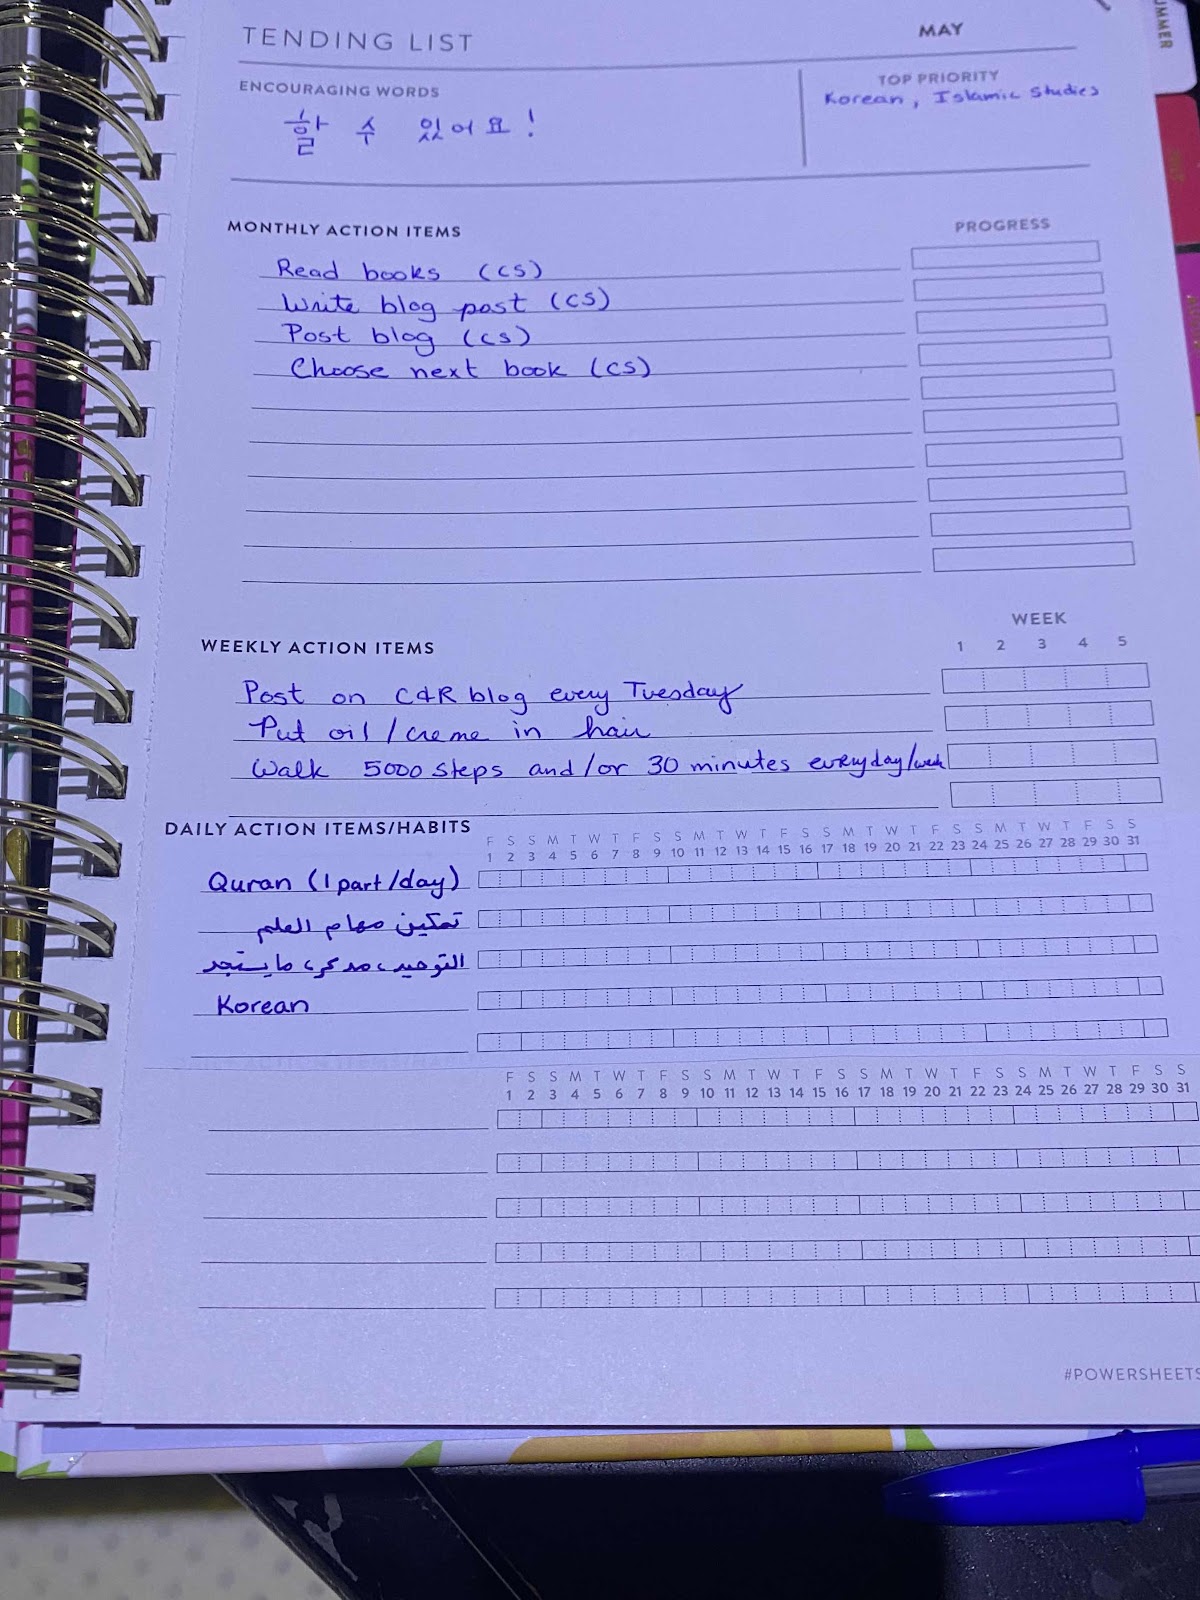 UMMER
TENDING LIST
MAY
ENCOURAGING WORDS
할 수 있어요!
TOP PRIORITY
Korean, Islamic Studies
MONTHLY ACTION ITEMS
PROGRESS
Read books (CS)
Write blog post (CS)
Post blog (CS)
Choose next book (CS)
WEEKLY ACTION ITEMS
WEEK
1 2 3 4 5
Post on C&R blog every Tuesday
Put oil/creme in hair
Walk 5000 steps and/or 30 minutes everyday/week
DAILY ACTION ITEMS/HABITS
F S S M T W T F S S M T W T F S S M T W T F S S M T W T F S S
1 2 3 4 5 6 7 8 9 10 11 12 13 14 15 16 17 18 19 20 21 22 23 24 25 26 27 28 29 30 31
Quran (1 part/day)
تمكين مهام العلم
التوحيد، مدى، ما يستجد
Korean
F S S M T W T F S S M T W T F S S M T W T F S S M T W T F S S
1 2 3 4 5 6 7 8 9 10 11 12 13 14 15 16 17 18 19 20 21 22 23 24 25 26 27 28 29 30 31
#POWERSHEETS